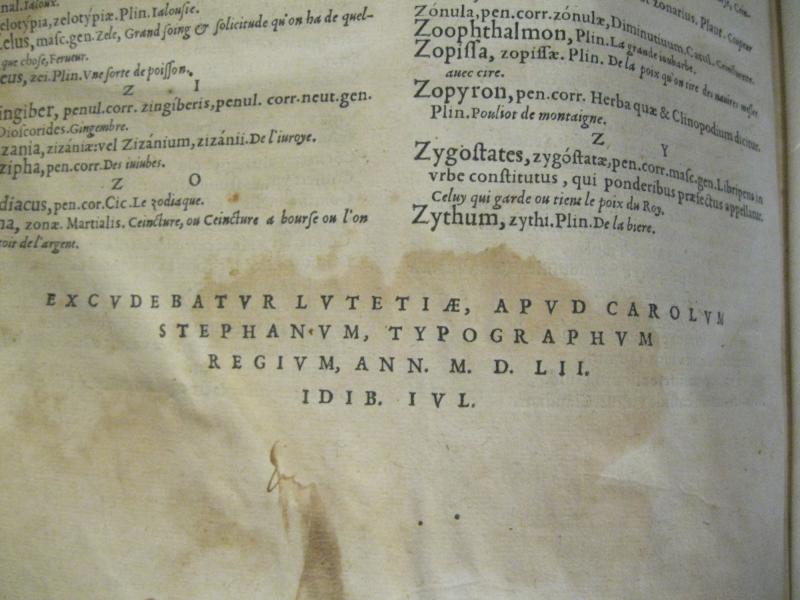 nal. Ialoux.
elotypia, zelotypiæ. Plin. Ialousie.
elus, masc. gen. Zele, Grand soing & solicitude qu'on ha de quel-
que chose, Ferueur.
eus, zei. Plin. Vne sorte de poisson.
Z I
ingiber, penul. corr. zingiberis, penul. corr. neut. gen.
Dioscorides. Gingembre.
zania, zizániæ: vel Zizánium, zizánii. De l'iuroye.
zipha, pen. corr. Des iuiubes.
Z O
diacus, pen. cor. Cic. Le zodiaque.
na, zonæ. Martialis. Ceincture, ou Ceincture a bourse ou l'on
de l'argent.
zonarius. Plaut. Coupeur
Zónula, pen. corr. zónulæ, Diminutiuum. Catul.
Zoophthalmon, Plin. La grande ioubarbe.
Zopissa, zopissæ. Plin. De la poix qu'on tire des nauires meslee
auec cire.
Zopyron, pen. corr. Herba quæ & Clinopodium dicitur.
Plin. Pouliot de montaigne.
Z Y
Zygostates, zygóstatæ, pen. corr. masc. gen. Libripens in
vrbe constitutus, qui ponderibus præfectus appellatur.
Celuy qui garde ou tient le poix du Roy.
Zythum, zythi. Plin. De la biere.
EXCVDEBATVR LVTETIÆ, APVD CAROLVM
STEPHANVM, TYPOGRAPHVM
REGIVM, ANN. M. D. LII.
IDIB. IVL.